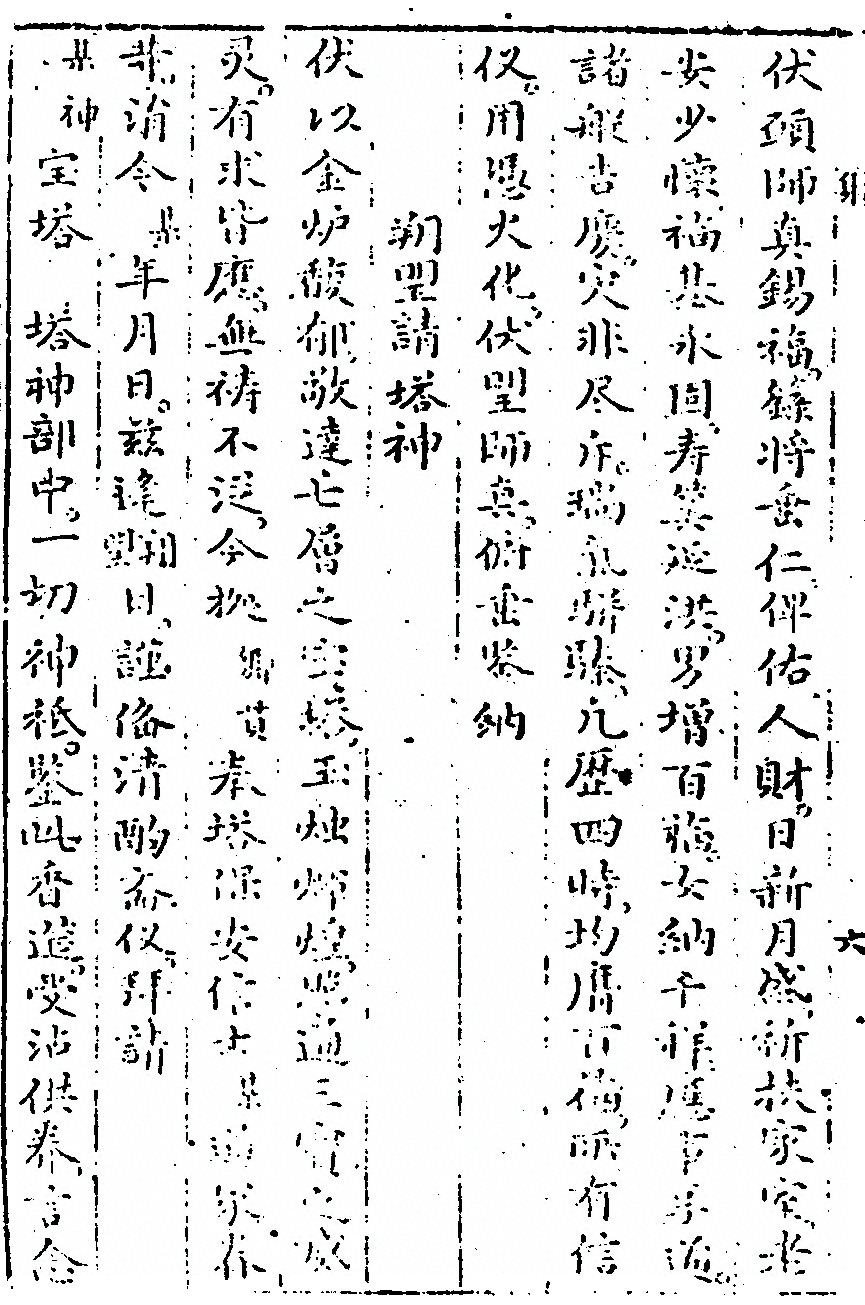 伏願師真錫福籙将垂仁俾佑人財日新月盛祈扶家室老
安少懷福基永固寿筭延洪男增百福女納千祥應事亨通
諸般吉慶灾非尽斥瑞氣駢臻凢歷四時均膺百福所有信
仪用憑火化伏望師真俯垂鉴納
朔望請塔神
伏以金炉馥郁敬達七層之宝塔玉烛煇煌照通三寳之威
灵有求皆應無祷不従今拠 鄉貫 奉塔保安信士某 闔家等
涓今某年月日茲逢朔望日謹俻清酌斋仪拜請
某神宝塔 塔神部中一切神祇鑒此香筵受沾供养言念
六